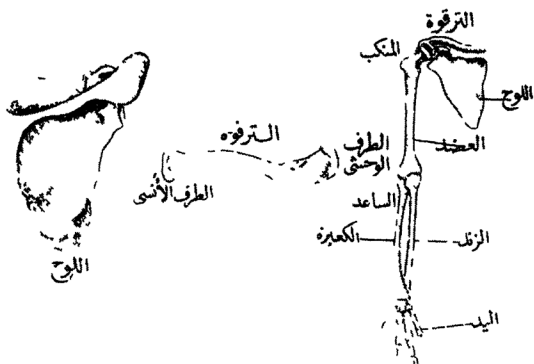 الترقوة
المنكب
اللوح
العضد
الترقوه
الطرف
الوحشى
الطرف الأنسى
الساعد
الكعبرة
الزند
اللوح
اليد